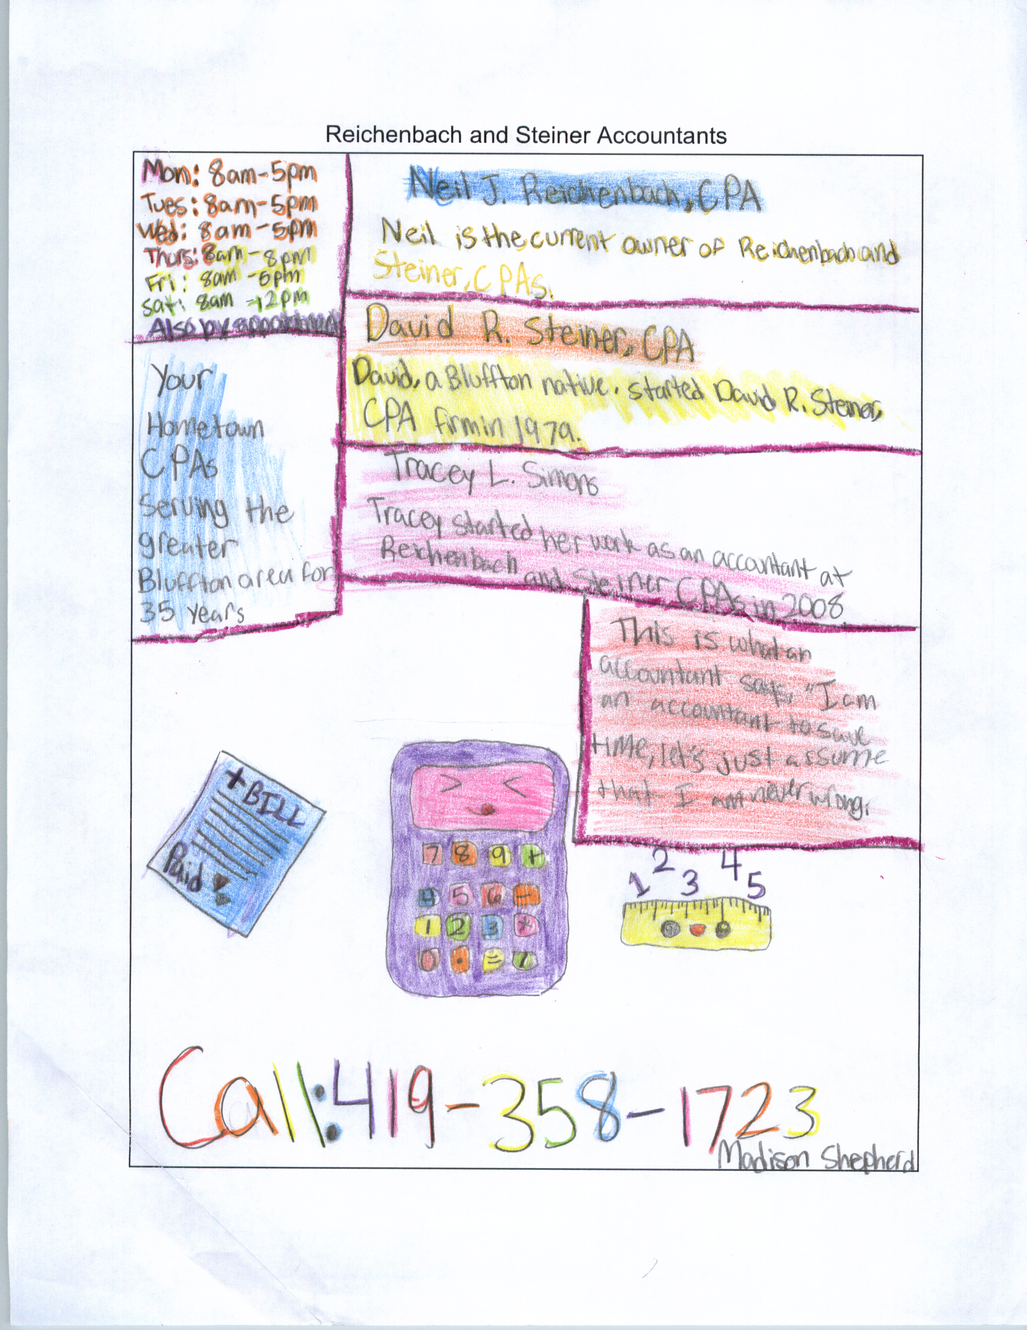 Reichenbach and Steiner Accountants
Mon: 8am-5pm
Tues: 8am-5pm
Wed: 8am-5pm
Thurs: 8am-8pm
Fri: 8am-5pm
Sat: 8am-12pm
Also by appointment
Your
Hometown
CPAs
Serving the
greater
Bluffton area for
35 years
Neil J. Reichenbach, CPA
Neil is the current owner of Reichenbach and
Steiner, CPAs.
David R. Steiner, CPA
David, a Bluffton native. started David R. Steiner,
CPA firm in 1979.
Tracey L. Simons
Tracey started her work as an accountant at
Reichenbach and Steiner CPAs in 2008
This is what an
accountant says, "I am
an accountant to save
time, let's just assume
that I am never wrong.
+BILL
Paid
7 8 9 +
4 5 6 -
1 2 3 *
0 . = /
1 2 3 4 5
Call: 419-358-1723
Madison Shepherd